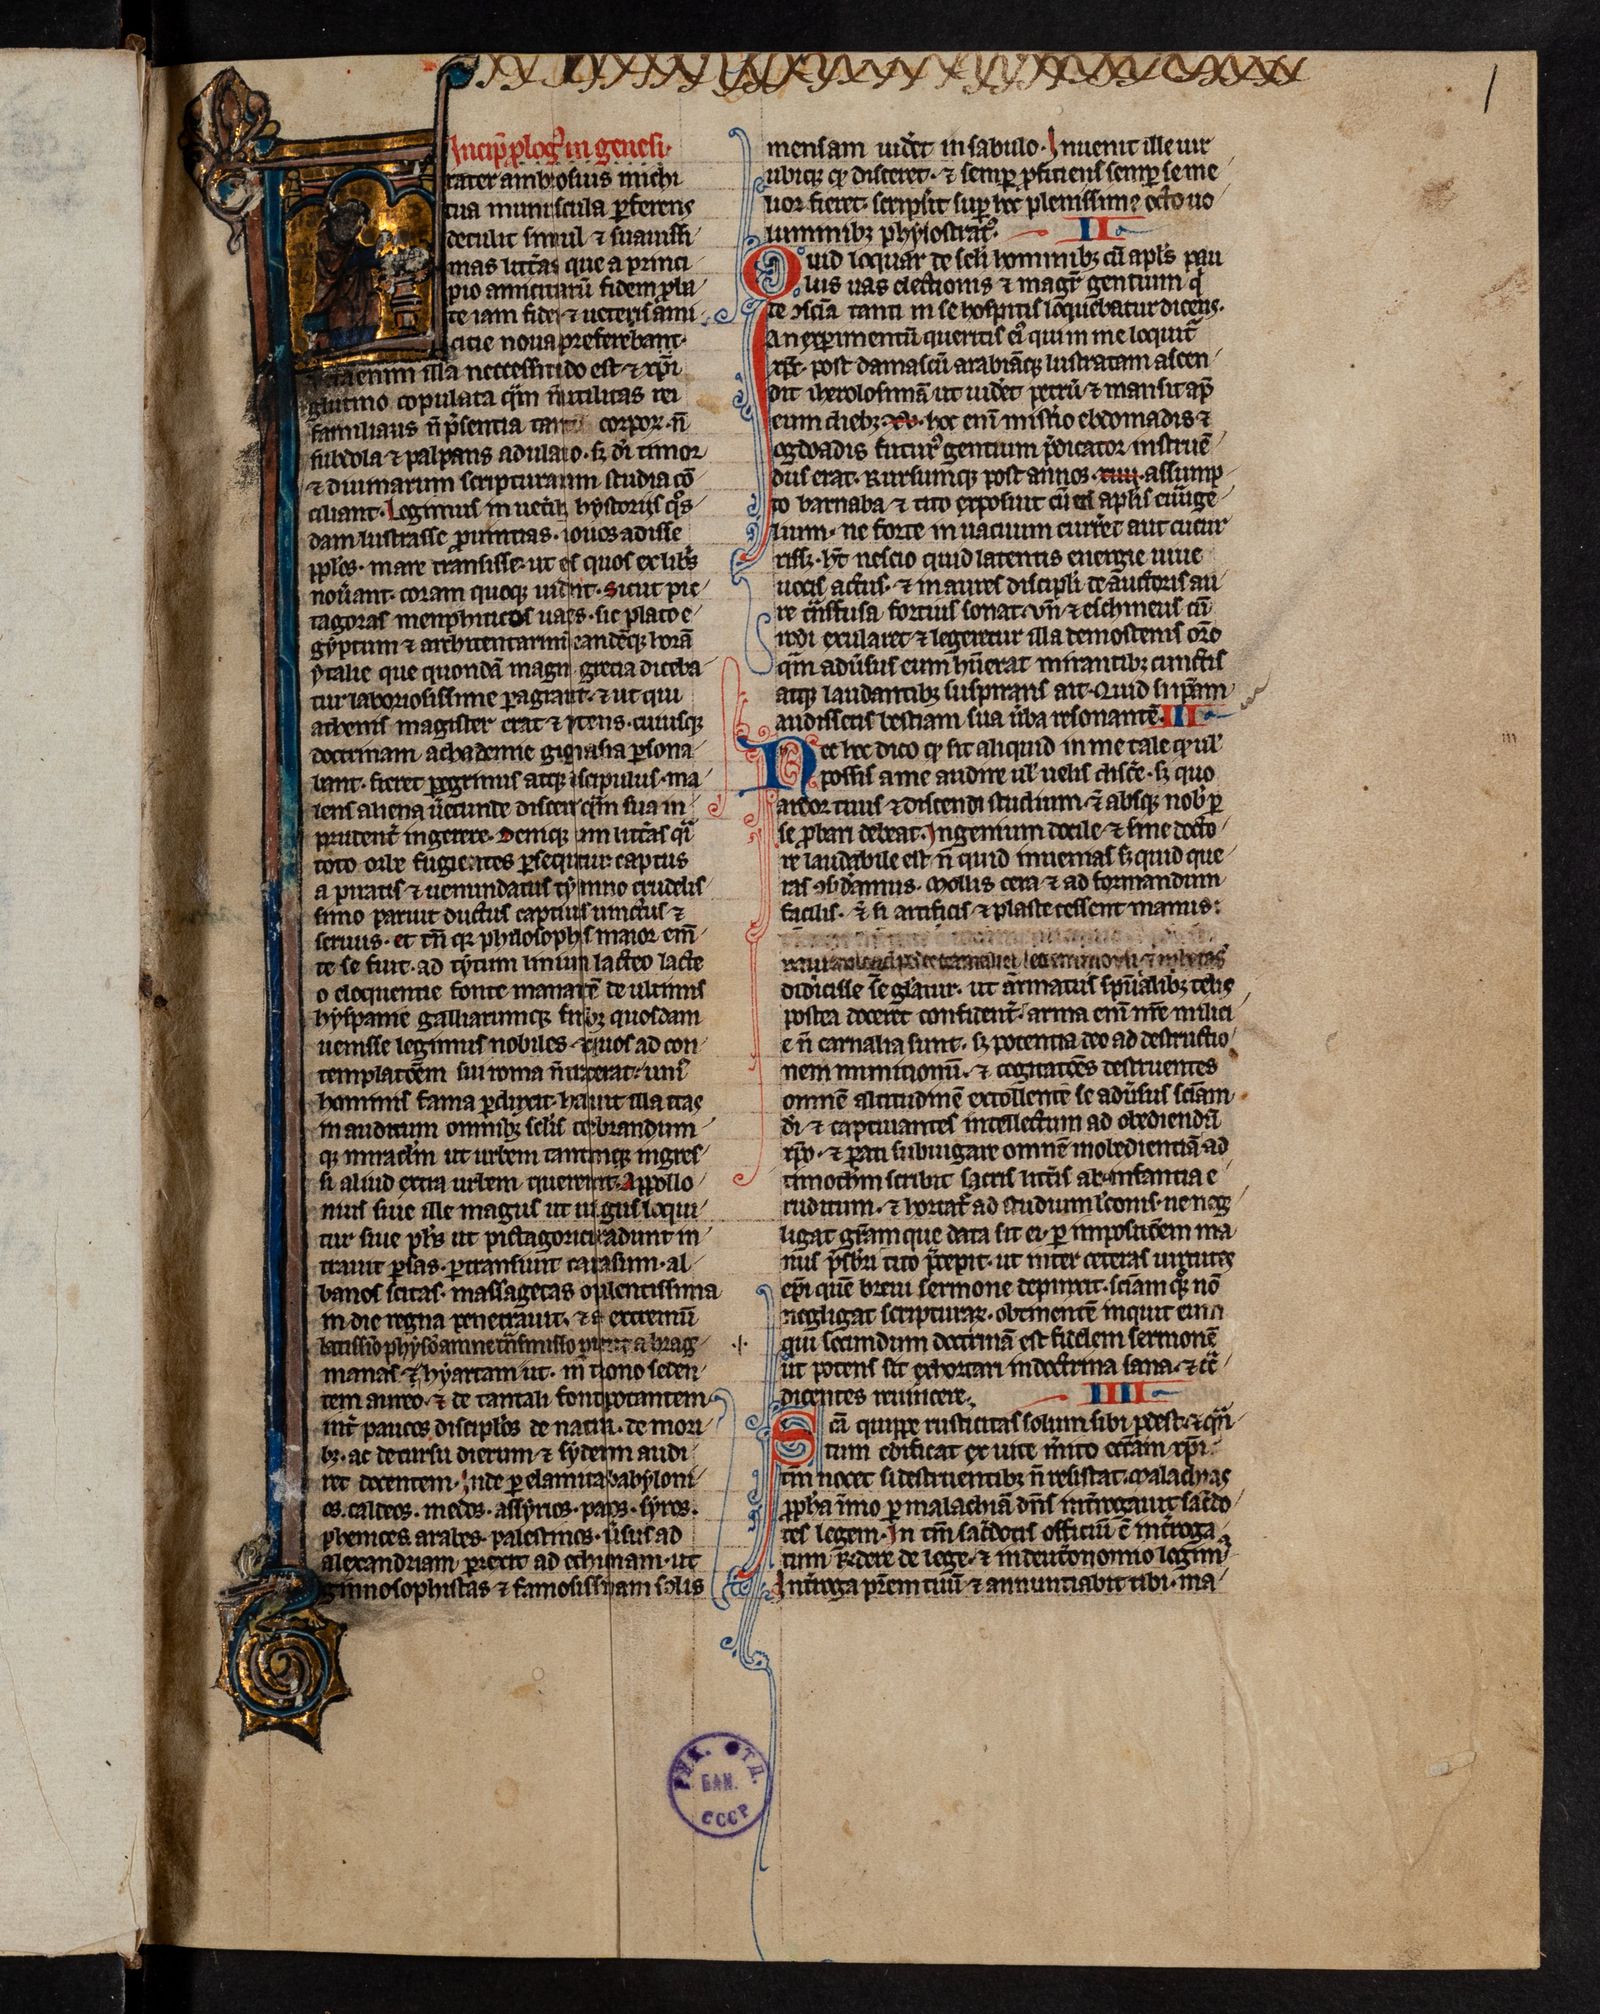 Incip̄ ꝓlog᷒ in genesi.
rater ambrosius michi
tua munuscula ꝑferens
detulit simul ⁊ suauissi
mas litt̄as que a princi
pio amicitiarū fidem ꝓba
te iam fidei ⁊ ueteris ami
citie noua preferebant.
enim illa necessitudo est ⁊ xp̄i
glutino copulata q̄m n̄ utilitas rei
familiaris n̄ p̄sentia corpoꝝ. n̄
subdola ⁊ palpans adulatio. sꝫ dī timor
⁊ diuinarum scripturarum studia cō
ciliant. Legimus in uetībꝫ hystoriis q̊s
dam lustrasse ꝓuintias. nouos adisse
pp̄los. mare transisse. ut eos quos ex libris
nouant. coram quoqꝫ uidēnt. Sicut pic
tagoras memphiticos uates. sic plato e
gyptum ⁊ architentarninū eandēqꝫ horā
ytalie que quondā magna grecia diceba
tur laboriosissime ꝑagrauit. ⁊ ut qui
athenis magister erat ⁊ potens. cuiusqꝫ
doctrinam achademie gignasia ꝑsona
bant. fieret ꝑegrinus atqꝫ discipulus. ma
lens aliena ūecunde discere q̄m sua in
prudent̄ ingerere. Deniqꝫ cum litt̄as q̄i
toto orbe fugientes ꝑsequitur captus
a piratis ⁊ uenundatus tyranno crudelis
simo paruit ductus captiuus uinctus ⁊
seruus. et tn̄ qꝫ philosophus maior emē
te se fuit. ad tytum liuium lacteo lacte
o eloquentie fonte manantē de ultimis
hyspanie galliarumqꝫ finibꝫ quosdam
uenisse legimus nobiles. ⁊ quos ad con
templatōem sui roma n̄ traxerat. uni᷒
hominis fama ꝑduxit. habuit illa etas
inauditum omnibꝫ sc̄lis celebrandum
qꝫ miraclm̄ ut urbem tantamqꝫ ingres
si aliud extra urbem quererent. Appollo
nius siue ille magus ut uulgus loqui
tur siue phs̄ ut pictagorici tradunt in
trauit ꝑsas. ꝑtransiuit caucasum. al
banos scitas. massagetas opulentissima
indie regna penetrauit. ⁊ ad extremū
latissīo physō amne tn̄smisso puenit a brag
manas. ⁊ hyartam ut. in trono seden
tem aureo. ⁊ de tantali fonte potantem
int̄ paucos disciplōs de natura. de mori
bꝫ. ac de cursu dierum ⁊ syderum audi
ret docentem. Inde ꝑ elamitas babyloni
os. caldeos. medos. assyrios. partos. syros.
phenices. arabes. palestinos. ūsus ad
alexandriam ꝑrexit ad ethiopiam. ut
gimnosophistas ⁊ famosissimam solis
mensam uidēt in sabulo. Inuenit ille uir
ubiqꝫ qđ disceret. ⁊ semꝑ ꝓficiens semꝑ se me
lior fieret. scripsit suꝑ hoc plenissime octo uo
luminibꝫ phylostrat᷒. II
Quid loquar de sc̄li hominibꝫ cū apl̄s pau
lus uas electionis ⁊ magr̄ gentium q̄
de ↄsciā tanti in se hospitis loquebatur dicens.
An exꝑimentū queritis ei᷒ qui in me loquit̄
xp̄c. post damascū arabiāqꝫ lustratam ascen
dit iherosolimā ut uidēt petrū ⁊ mansit ap̄
eum diebꝫ. xv. hoc enī mistīo ebdomadis ⁊
ogdoadis futur᷒ gentium p̄dicator instruē
dus erat. Rursumqꝫ post annos. xiiii. assump
to barnaba ⁊ tito exposuit cū eis aplīs euuāge
lium. ne forte in uacuum currēt aut cucur
rissꝫ. hꝫ nescio quid latentis energie uiue
uocis actus. ⁊ in aures discipli de auctoris au
re tn̄sfusa fortius sonat. un̄ ⁊ eschineus cū
rodi exularet ⁊ legeretur illa demostenis orō
qm̄ adūsus eum hūerat mirantibꝫ cunctis
atqꝫ laudantibꝫ suspirans ait. Quid si ip̄am
audissetis bestiam sua ūba resonantē. III
Nec hec dico qđ sit aliquid in me tale qđ ul̄
possis a me audire ul̄ uelis discēre. sꝫ quo
ardor tuus ⁊ discendi studium. ⁊ absqꝫ nobꝫ ꝑ
se ꝓbari debeat. Ingenium docile ⁊ sine docto
re laudabile est. n̄ quid inuenias sꝫ quid que
ras ↄsid̄amus. Mollis cera ⁊ ad formandum
facilis. ⁊ si artificis ⁊ plaste cessent manus:
didicisse se gl̄atur. ut armatus spūalibꝫ telis
postea doceret confident̄. arma enī nr̄e milici
e n̄ carnalia sunt. sꝫ potentia deo ad destructio
nem munitionū. ⁊ cogitatōes destruentes
omnē altitudinē extollentē se adūsus sciam
dī ⁊ captiuantes intellectum ad obediendū
xp̄o. ⁊ ꝑati subiugare omnē inobedientiā. ad
timothm̄ scribit sacris litt̄is ab infantia e
ruditum. ⁊ hortat̄ ad studium lc̄onis. ne neg
ligat gr̄am que data sit ei ꝑ impositōem ma
nus p̄sbr̄i. tito p̄cepit. ut inter ceteras uirtutes
ep̄i quē breui sermone depinxit. sciām qꝫ nō
negligat scripturaꝝ. obtinentē inquit eum
qui secundum doctrinā est fidelem sermonē
ut potens sit exhortari in doctrina sana. ⁊ cō
dicentes reuincere. IIII
Sc̄a quippe rusticitas solum sibi ꝓdest. ⁊ q̄n
tum edificat ex uite m̄ito ecc̄am xp̄i.
tm̄ nocet si destruentibꝫ n̄ resistat. Malachias
ꝓph̄a īmo ꝑ malachiā dn̄s int̄rogauit sac̄do
tes legem. In tm̄ sac̄dotis officiū ē int̄roga
tum r̄ndere de lege. ⁊ in deut̄onomio legim᷒.
Int̄roga pr̄em tuū ⁊ annuntiabit tibi. ma
1
III
РУК. ОТД.
БАН.
СССР